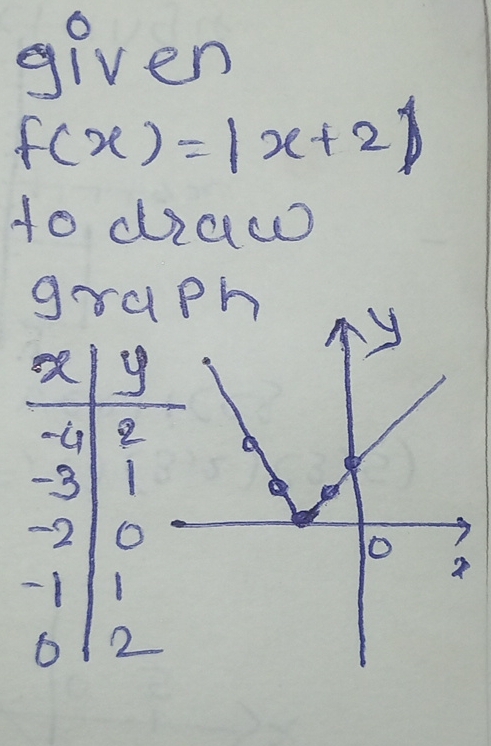 given
f(x)=|x+2|
to draw
graph
x y
-4 2
-3 1
-2 0
-1 1
0 2
y
0
x